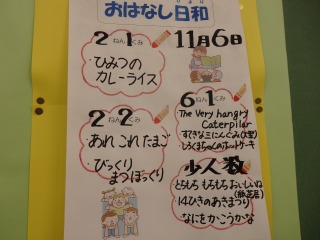 おはなし日和
びより
2ねん1くみ
11月6日
・ひみつの
カレーライス
2ねん2くみ
・あれこれたまご
・びっくり
まつぼっくり
6ねん1くみ
・The Very hangry
Caterpilar
・すてきな三にんぐみ(大型)
・しろくまちゃんのホットケーキ
少人数
とろもろ もろもろ おいしいね
(紙芝居)
14ひきのあさまつり
なにをかこうかな